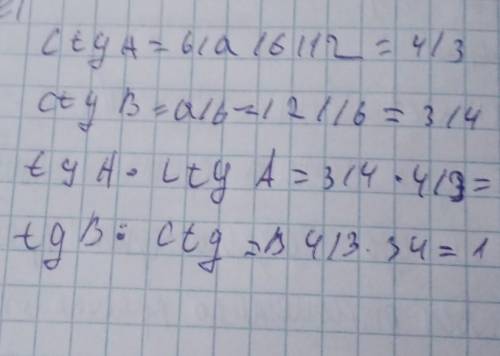 ctg A = b/a 16/12 = 4/3
ctg B = a/b = 12/16 = 3/4
tg A • ctg A = 3/4 • 4/3 =
tg B • ctg = B 4/3 • 34 = 1